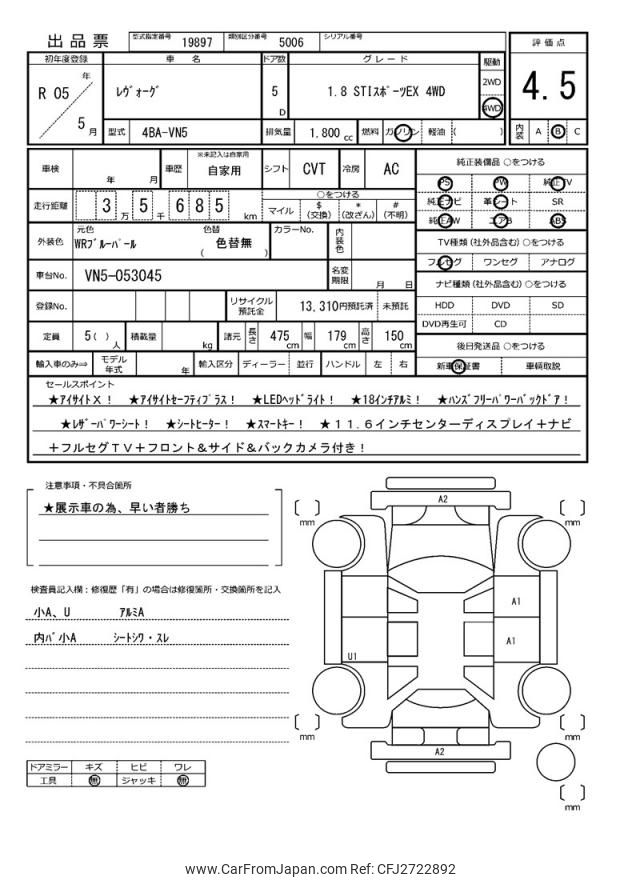 出品票 型式指定番号 19897 類別区分番号 5006 シリアル番号
評価点
4.5
内装 A B C
初年度登録 車名 ドア数 グレード 駆動
R 05 年 5 月
ﾚｳﾞｫｰｸﾞ
5 D
1.8 STIｽﾎﾟｰﾂEX 4WD
2WD
4WD
型式 4BA-VN5 排気量 1,800 cc 燃料 ガソリン 軽油 ( )
車検 年 月 車歴 ※未記入は自家用 自家用 シフト CVT 冷房 AC
走行距離 3万 5千 685 km
○をつける
マイル $(交換) *(改ざん) #(不明)
外装色 元色 WRﾌﾞﾙｰﾊﾟｰﾙ 色替 ( 色替無 ) カラーNo. 内装色
車台No. VN5-053045 名変期限 月 日
登録No. リサイクル預託金 13,310円預託済 未預託
定員 5( )人 積載量 kg 諸元 長さ 475cm 幅 179cm 高さ 150cm
輸入車のみ⇒ モデル年式 年 輸入区分 ディーラー 並行 ハンドル 左 右
純正装備品 ○をつける
PS PW 純正TV
純正ナビ 革シート SR
純正AW エアB ABS
TV種類 (社外品含む) ○をつける
フルセグ ワンセグ アナログ
ナビ種類 (社外品含む) ○をつける
HDD DVD SD
DVD再生可 CD
後日発送品 ○をつける
新車保証書 車輌取説
セールスポイント
★ｱｲｻｲﾄX！ ★ｱｲｻｲﾄｾｰﾌﾃｨﾌﾟﾗｽ！ ★LEDﾍｯﾄﾞﾗｲﾄ！ ★18ｲﾝﾁｱﾙﾐ！ ★ﾊﾝｽﾞﾌﾘｰﾊﾟﾜｰﾊﾞｯｸﾄﾞｱ！
★ﾚｻﾞｰﾊﾟﾜｰｼｰﾄ！ ★ｼｰﾄﾋｰﾀｰ！ ★ｽﾏｰﾄｷｰ！ ★１１.６インチセンターディスプレイ＋ナビ
＋フルセグＴＶ＋フロント＆サイド＆バックカメラ付き！
注意事項・不具合箇所
★展示車の為、早い者勝ち
検査員記入欄：修復歴「有」の場合は修復箇所・交換箇所を記入
小A、U ｱﾙﾐA
内ﾊﾞ小A ｼｰﾄｼﾜ・ｽﾚ
ドアミラー キズ ヒビ ワレ
工具 無 ジャッキ 無
A2
mm
mm
A1
A1
U1
mm
mm
A2
mm
www.CarFromJapan.com Ref: CFJ2722892